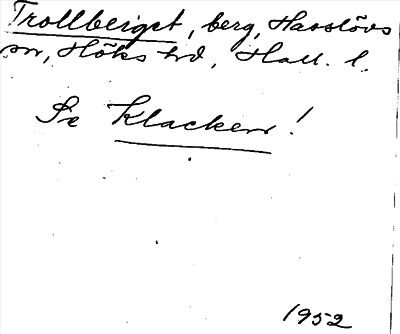 Trollberget, berg, Hasslövs
sn, Höks hd, Hall. l.
Se Klacken!
1952